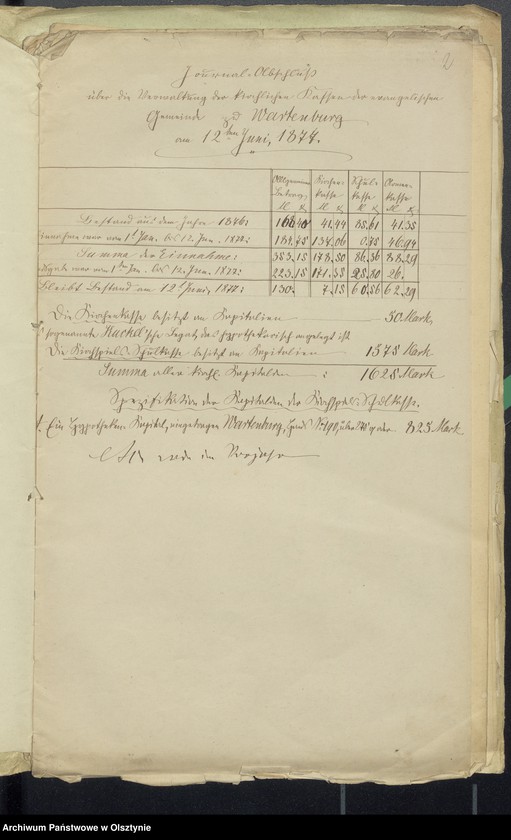 2
Journal-Abschluß
über die Verwaltung der kirchlichen Kassen der evangelischen
Gemeinde zu Wartenburg
am 12ten Juni, 1877.
Allgemeiner Betrag, Kirchen-kasse Schul-kasse Armen-kasse
M. M. M. M.
Bestand aus dem Jahre 1876: 168.40 41.44 85.61 41.35
Einnahme war vom 1st Jan. bis 12. Jun. 1877: 184.75 137.06 0.75 46.94
Summa der Einnahme: 353.15 178.50 86.36 88.29
Ausgabe war vom 1ten Jan. bis 12. Jun. 1877: 223.15 171.35 25.80 26.
Bleibt Bestand am 12t Juni, 1877: 130. 7.15 60.56 62.29
Die Kirchenkasse besitzt an Kapitalien 50 Mark,
sogenannte Legat, das hypothekarisch angelegt ist
Die Kirchspiels-Schulkasse besitzt an Kapitalien 1575 Mark
Summa aller kirchl. Kapitalien : 1625 Mark
Spezifikation der Kapitalien der Kirchspiels-Schulkasse.
1. Ein Hypotheken-Kapital, eingetragen Wartenburg, 825 Mark
Archiwum Państwowe w Olsztynie